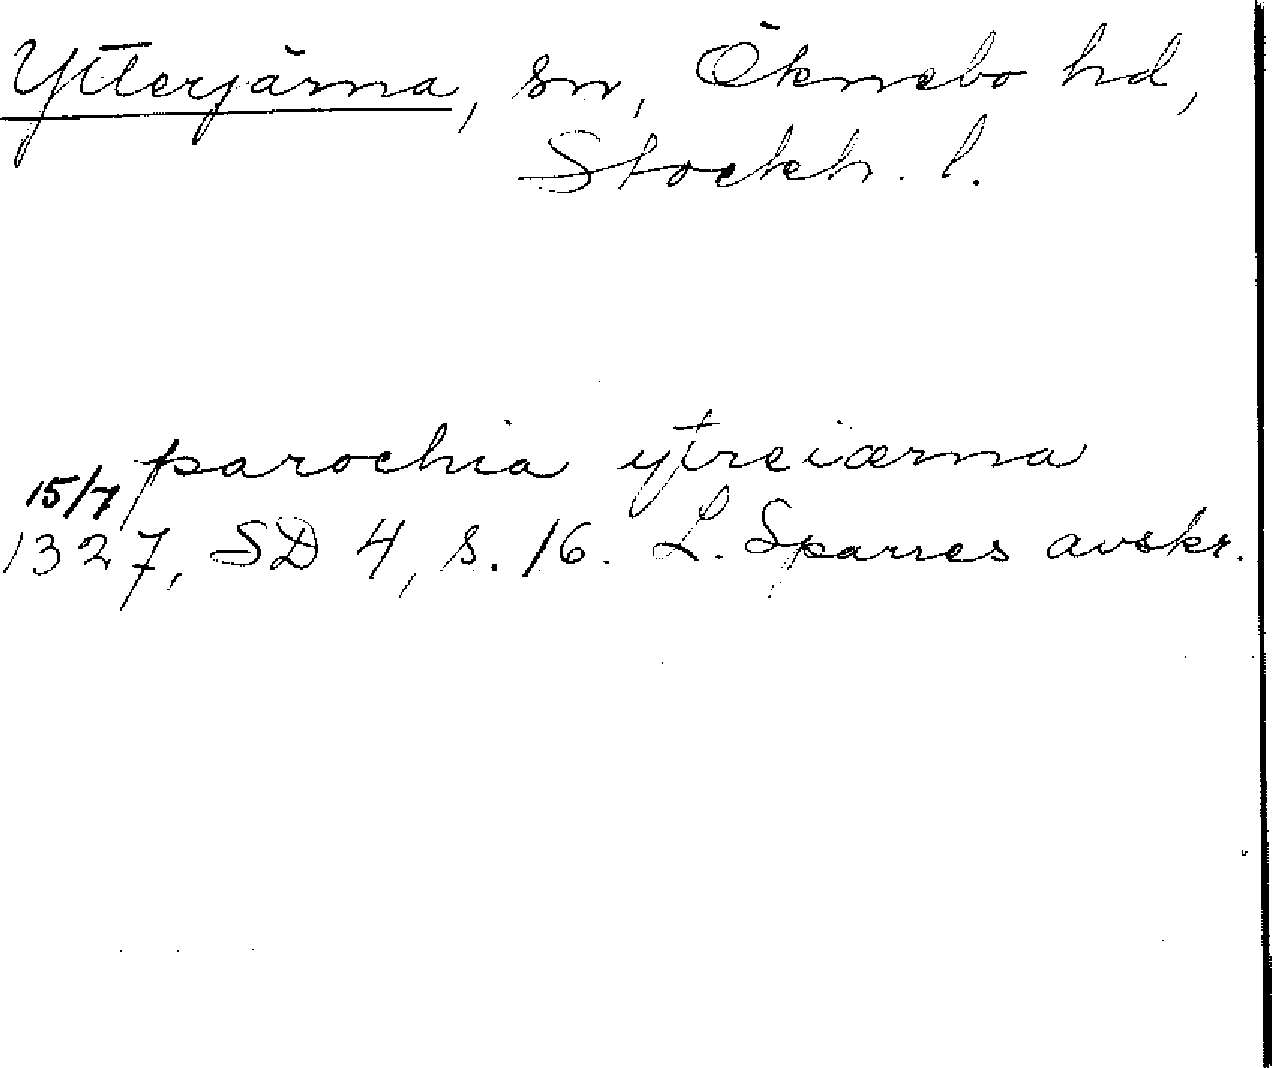 Ytterjärna, sn, Öknebo hd,
Stockh. l.
parochia ytreiærna
15/7
1327, SD 4, s. 16. L. Sparres avskr.